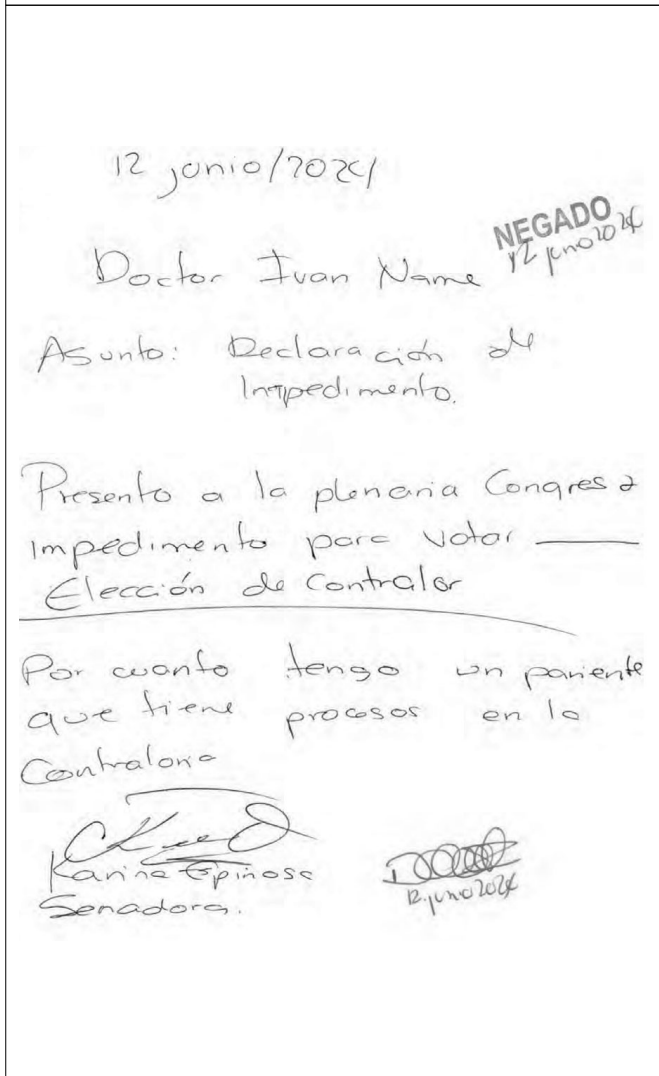 12 junio/2024
NEGADO
12 junio 2024
Doctor Ivan Name
Asunto: Declaración de
Impedimento.
Presento a la plenaria Congreso
impedimento para votar
Elección de Contralor
Por cuanto tengo un pariente
que tiene procesos en la
Contraloria
Karina Espinosa
Senadora.
12. junio 2024